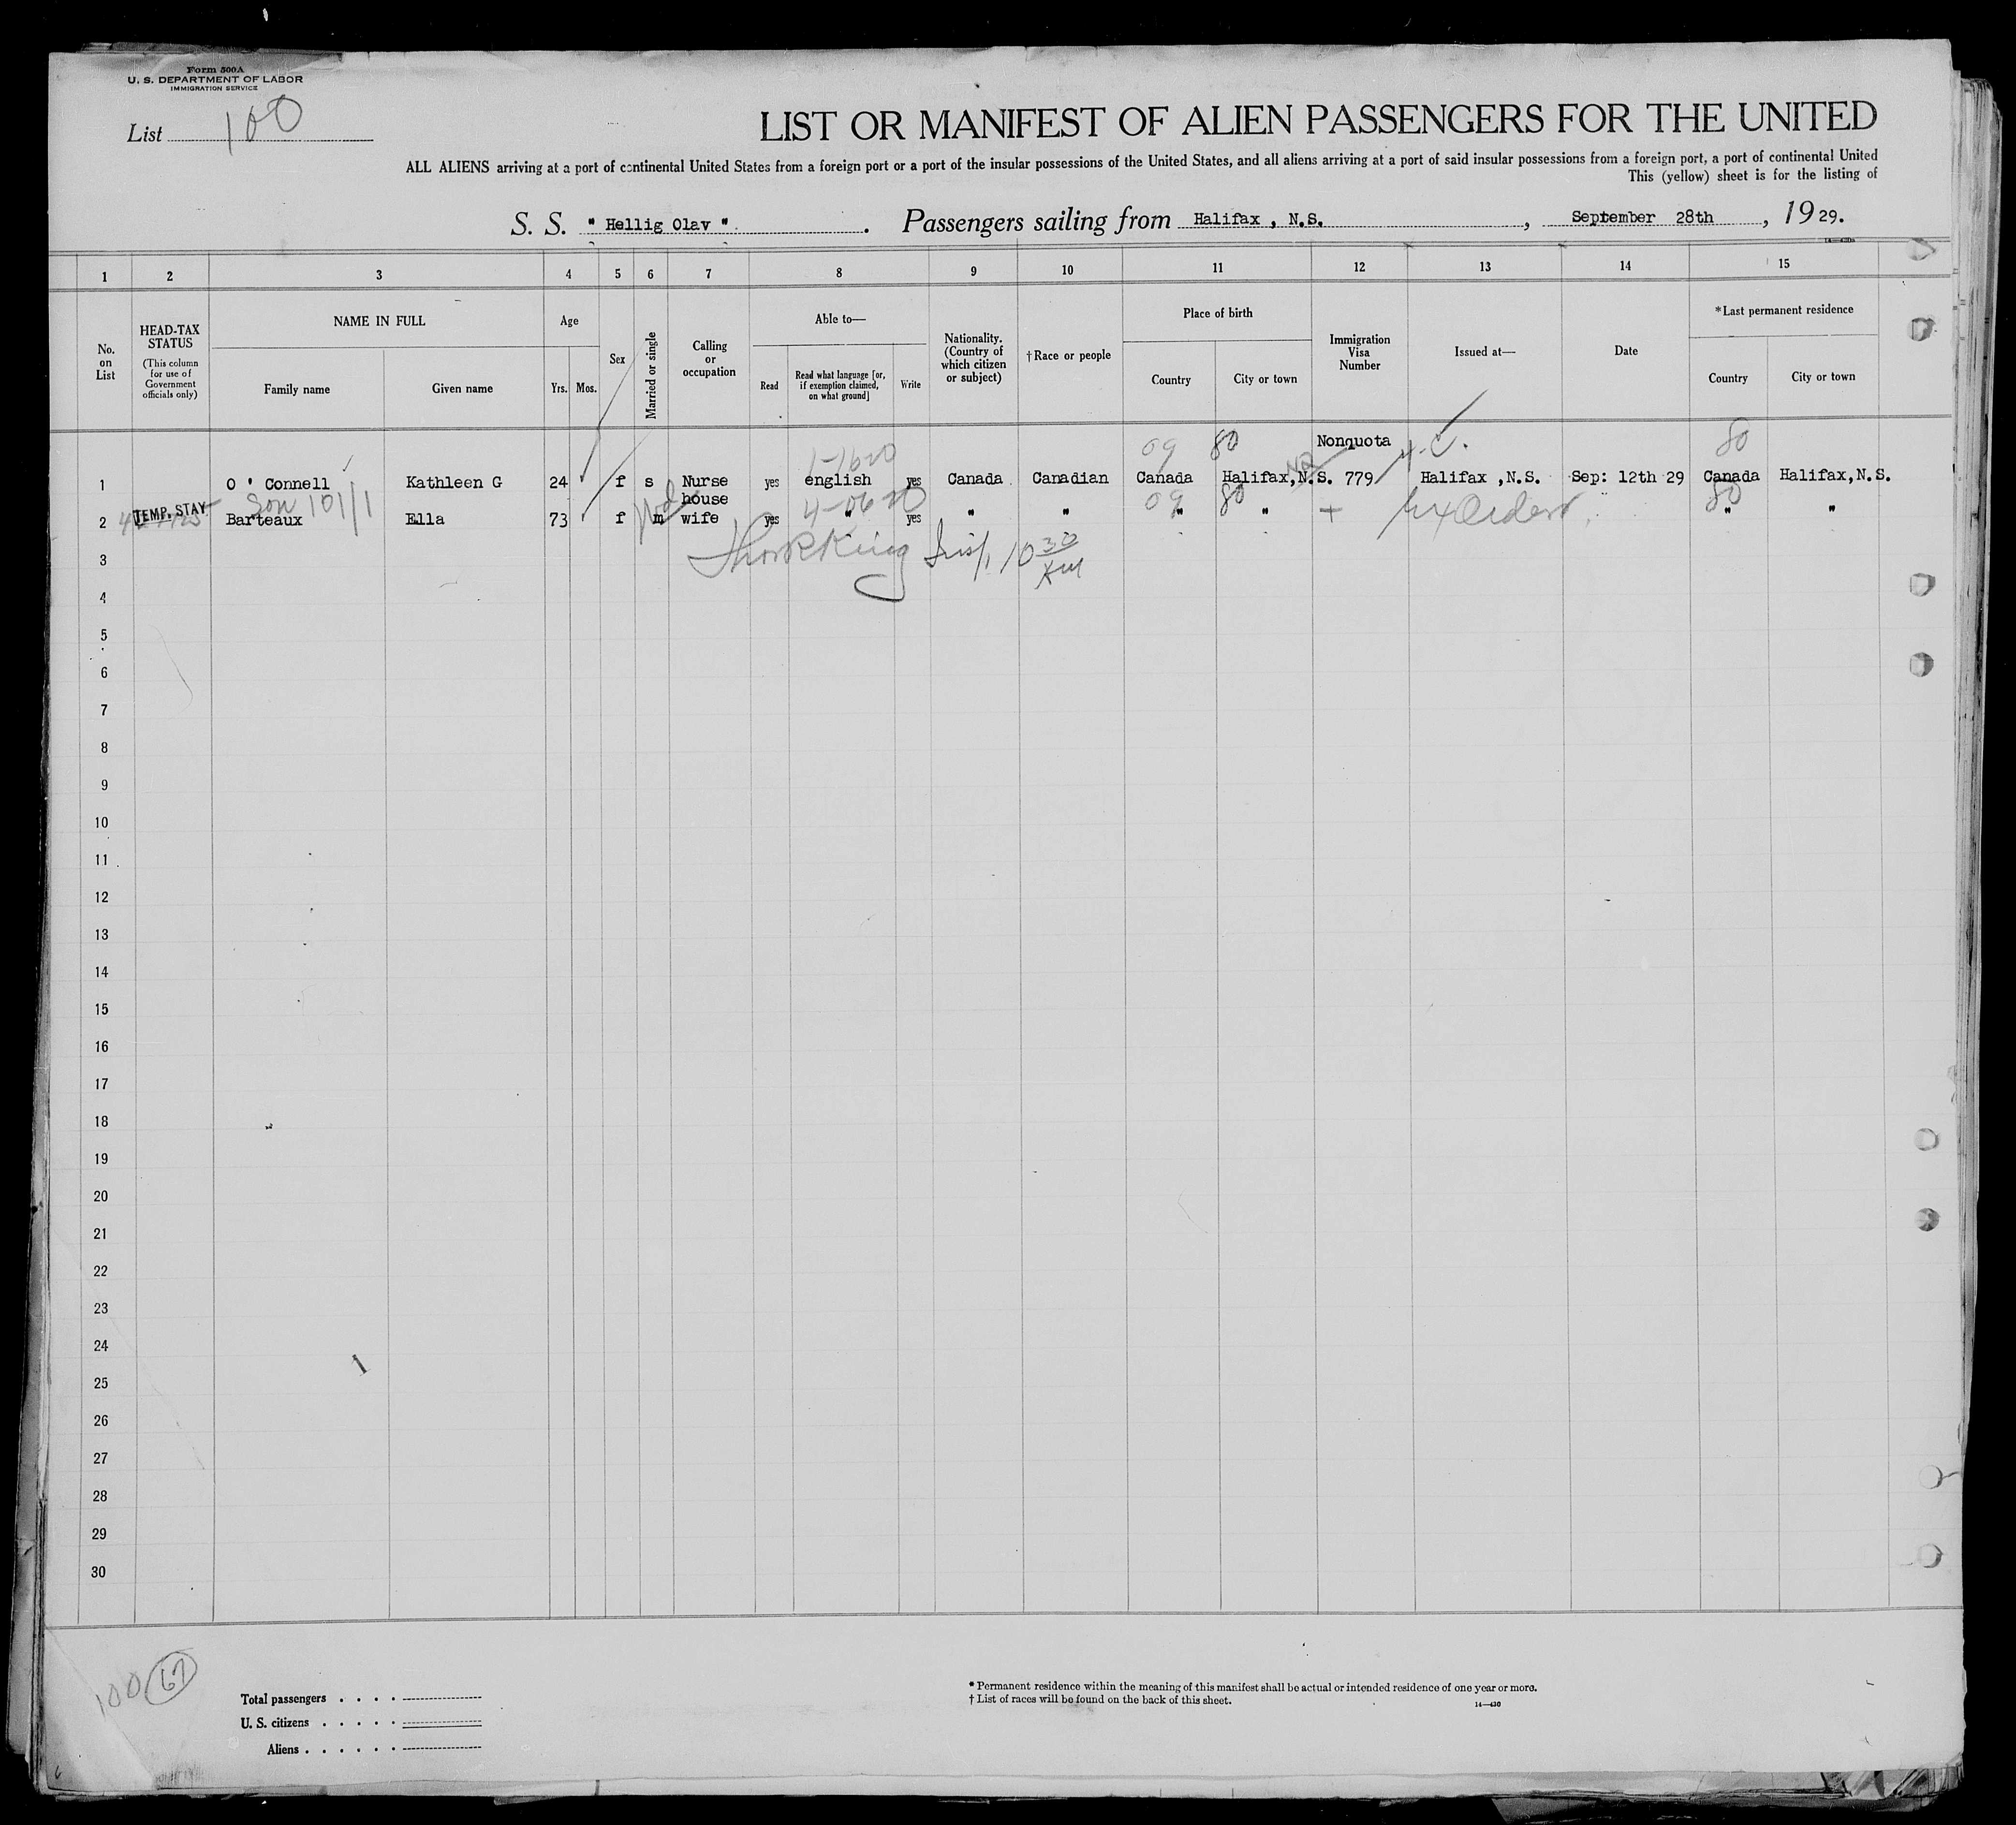 Form 500A
U. S. DEPARTMENT OF LABOR
IMMIGRATION SERVICE
List 100
LIST OR MANIFEST OF ALIEN PASSENGERS FOR THE UNITED
ALL ALIENS arriving at a port of continental United States from a foreign port or a port of the insular possessions of the United States, and all aliens arriving at a port of said insular possessions from a foreign port, a port of continental United
This (yellow) sheet is for the listing of
S. S. " Hellig Olav ". Passengers sailing from Halifax , N.S. , September 28th , 1929.
1 2 3 4 5 6 7 8 9 10 11 12 13 14 15
No. on List
HEAD-TAX STATUS
(This column for use of Government officials only)
NAME IN FULL
Family name Given name
Age
Yrs. Mos.
Sex
Married or single
Calling or occupation
Able to—
Read Read what language [or, if exemption claimed, on what ground] Write
Nationality. (Country of which citizen or subject)
†Race or people
Place of birth
Country City or town
Immigration Visa Number
Issued at—
Date
*Last permanent residence
Country City or town
09 80 Nonquota 80
1 O ' Connell Kathleen G 24 f s Nurse yes english yes Canada Canadian Canada Halifax,N.S. 779 Halifax ,N.S. Sep: 12th 29 Canada Halifax,N.S.
TEMP. STAY 101/1 house 09 80 80
2 Barteaux Ella 73 f m wife yes " yes " " " " " "
3 King 10 30
4
5
6
7
8
9
10
11
12
13
14
15
16
17
18
19
20
21
22
23
24
25
26
27
28
29
30
100 67
Total passengers . . . .
U. S. citizens . . . . .
Aliens . . . . . .
* Permanent residence within the meaning of this manifest shall be actual or intended residence of one year or more.
† List of races will be found on the back of this sheet.
14—430